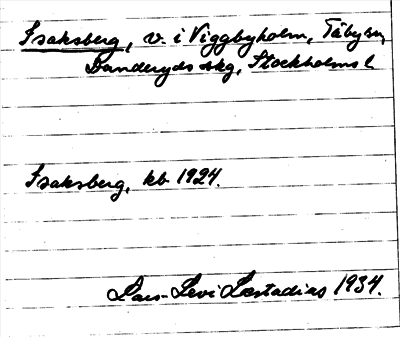 Isaksberg, v. i Viggbyholm, Täby sn,
Danderyds skg, Stockholms l
Isaksberg, kb 1924.
Lars-Levi Læstadius 1934.